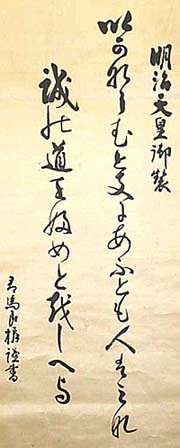 明治天皇御製
いかならむときにあふとも人はみな
誠の道をふめとをしへよ
有馬良橘謹書